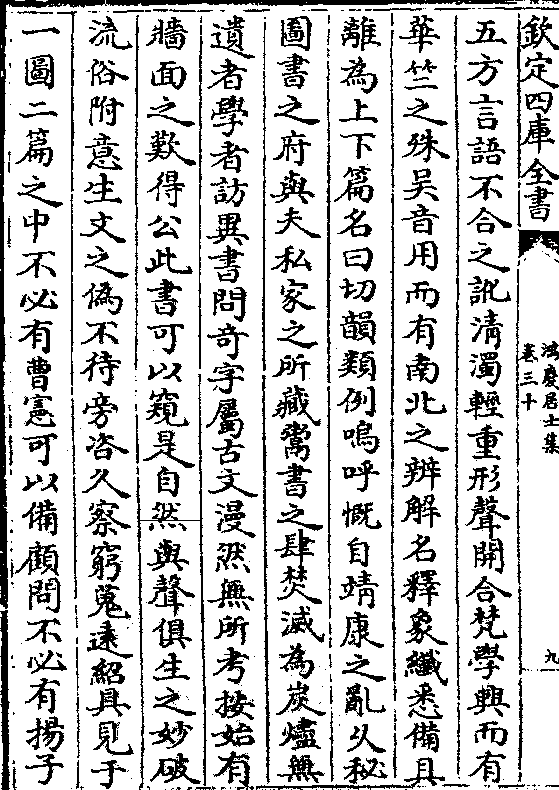 欽定四庫全書
鴻慶居士集
卷三十
九
五方言語不合之訛清濁輕重形聲開合梵學興而有
華竺之殊吳音用而有南北之辨解名釋象纖悉備具
離為上下篇名曰切韻類例嗚呼慨自靖康之亂以秘
圖書之府與夫私家之所藏鬻書之肆焚滅為炭燼無
遺者學者訪異書問奇字屬古文漫然無所考按始有
牆面之歎得公此書可以窺是自然與聲俱生之妙破
流俗附意生文之偽不待旁咨久察窮蒐遠紹具見于
一圖二篇之中不必有曹憲可以備顧問不必有揚子